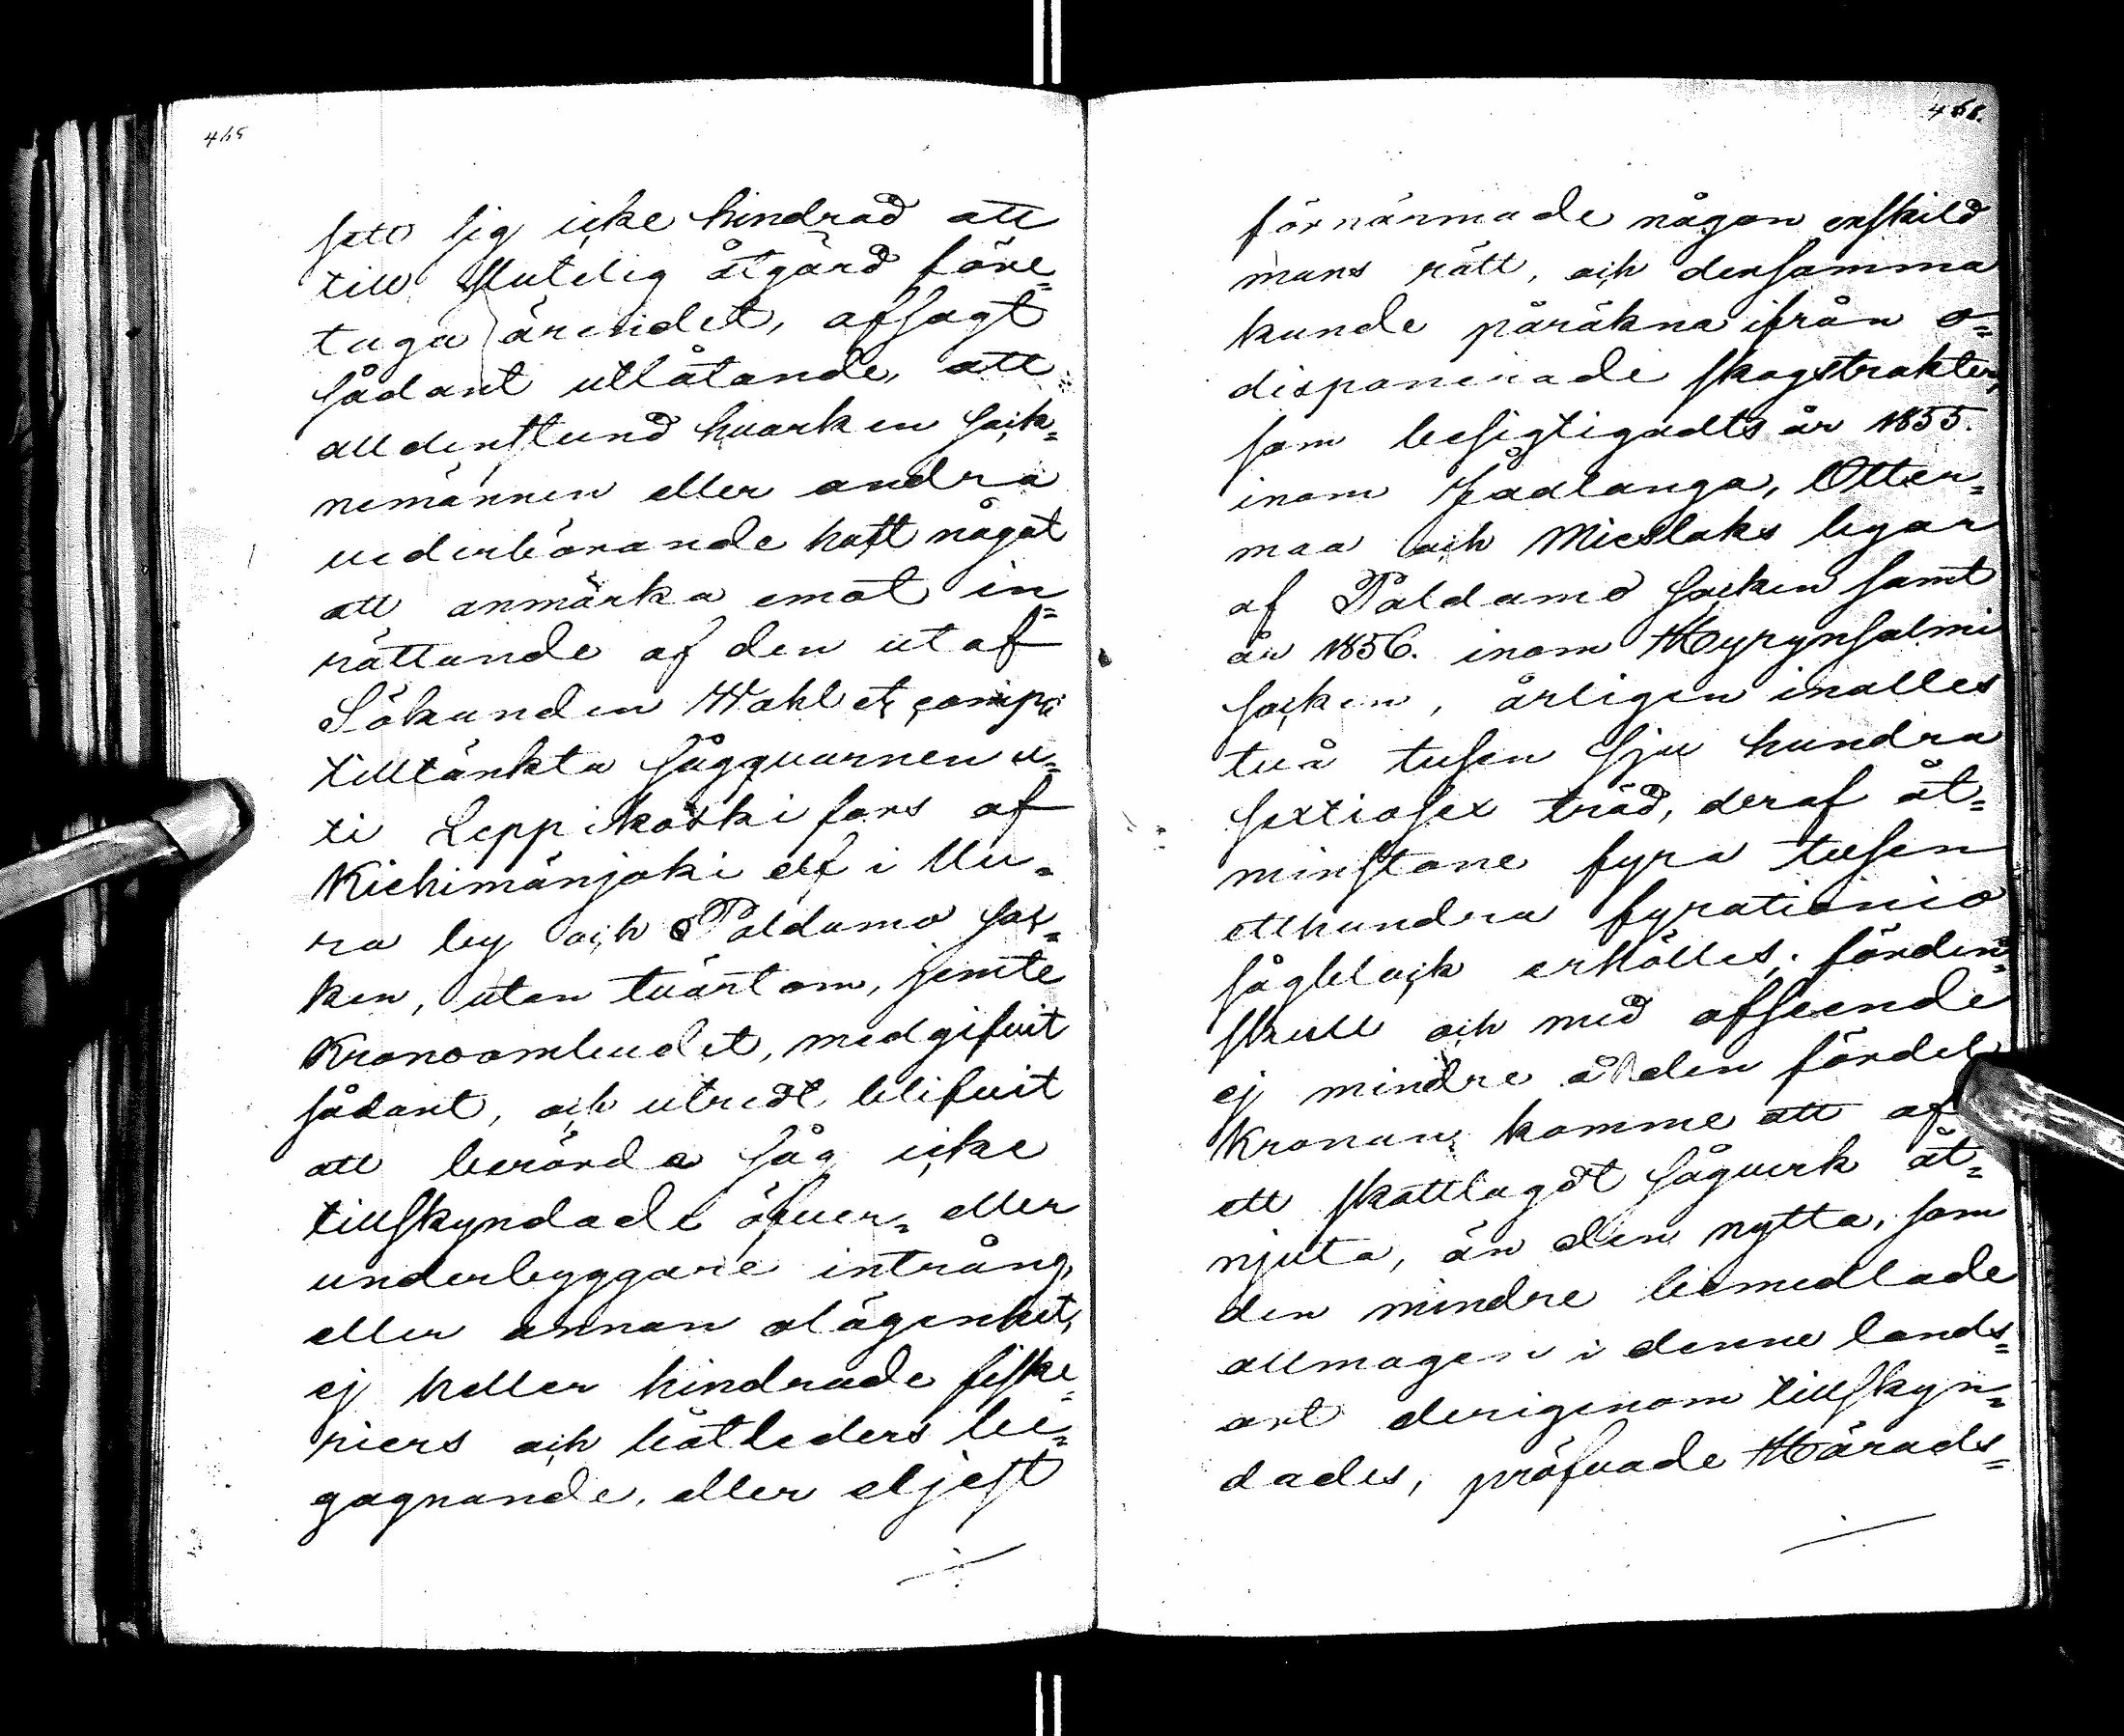 465
sett sig icke hindrad att
till slutelig åtgärd före=
taga ärendet, afsagt
sådant utlåtande, att
alldenstund hvarken sock=
nemännen eller andra
vederbörande haft något
att anmärka emot in=
rättande af den utaf
Sökanden Wahl et comp:
tilltänkta sågqvarnen u=
ti Leppikoski fors af
Kiehimänjoki elf i Uu=
ra by och Paldamo soc=
ken, utan tvärtom, jemte
Kronoombudet, medgifvit
sådant, och utredt blifvit
att berörda såg icke
tillskyndade öfver= eller
underbyggare intrång,
eller annan olägenhet,
ej heller hindrade fiske=
riers och båtleders be=
gagnande, eller eljest
466.
förnärmade någon enskild
mans rätt, och densamma
kunde påräkna ifrån o=
disponerade skogstrakter,
som besigtigadts år 1855.
inom Jaalanga, Otter=
maa och Mieslaks byar
af Paldamo socken samt
år 1856. inom Hyrynsalmi
socken, årligen inalles
två tusen sju hundra
sextiosex träd, deraf åt=
minstone fyra tusen
etthundra fyrationio
sågblock erhölles; förden=
skull och med afseende
ej mindre å den fördel
Kronan komme att af
ett skattlagdt sågverk åt=
njuta, än den nytta, som
den mindre bemedlade
allmogen i denne lands=
ort derigenom tillskyn=
dades, pröfvade Härads=